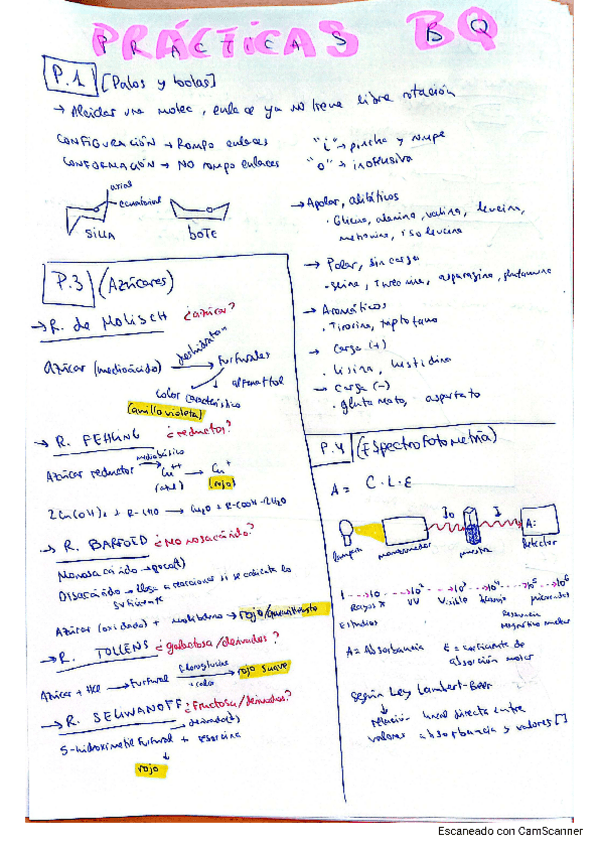 PRÁCTICAS BQ
P.1 [Palos y bolas]
→ Alcidar una molec, enlace ya no tiene libre rotación
CONFIGURACIÓN → Rompo enlaces
CONFORMACIÓN → NO rompo enlaces
"i" → pincha y rompe
"o" → inofensiva
axial
ecuatorial
SILLA
BOTE
→ Apolar, alifáticos
· Glicina, alanina, valina, leucina,
metionina, isoleucina
→ Polar, sin carga
· serina, treonina, asparagina, glutamina
→ Aromáticos
· Tirosina, triptofano
→ Carga (+)
· lisina, histidina
→ Carga (-)
· glutamato, aspartato
P.3 (Azúcares)
→ R. de MOLISCH ¿azúcar?
Azúcar (medio ácido) deshidratan → furfurales
color característico
(anillo violeta)
→ R. FEHLING ¿reductor?
Azúcar reductor mediobásico Cu++ → Cu+
(azul) (rojo)
2Cu(OH)2 + R-CHO → Cu2O + R-COOH + 2H2O
→ R. BARFOED ¿Monosacárido?
Monosacárido →
Disacárido → llega a reaccionar si se calienta lo
suficiente
Azúcar (oxidado) + molibdeno → rojo/
→ R. TOLLENS ¿galactosa/derivados?
Azúcar + HCl → Furfural floroglucina + calor → rojo suave
→ R. SELIWANOFF ¿Fructosa/derivados?
derivado(s)
5-hidroximetilfurfural + resorcina
rojo
P.4 (Espectrofotometría)
A = C·L·E
I0 I
A:
lámpara monocromador muestra detector
1 10 10² 10³ 10⁴ 10⁵ 10⁶
Rayos X UV Visible Resonancia microondas
Estudios Magnética nuclear
A = Absorbancia E = coeficiente de
absorción molar
Según Ley Lambert-Beer
relación lineal directa entre
valores absorbancia y valores []
Escaneado con CamScanner